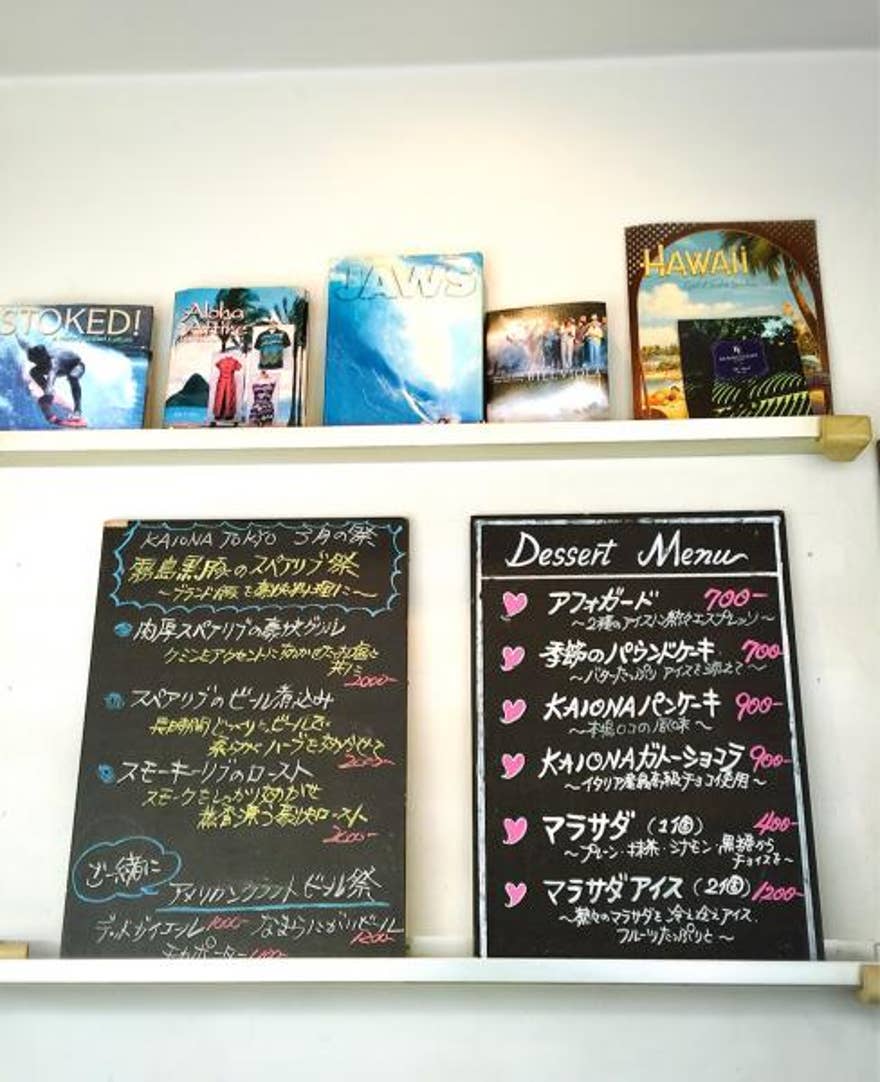 STOKED!
Aloha
Attire
JAWS
HAWAII
KAIONA TOKYO 3月の祭
霧島黒豚のスペアリブ祭
～ブランド豚を豪快料理に～
肉厚スペアリブの豪快グリル
クミンをアクセントに効かせた
共に
2000-
スペアリブのビール煮込み
長時間じっくりとビールで
柔らかくハーブを効かせて
2000-
スモーキーリブのロースト
スモークをしっかり効かせ
豪快ロースト
2000-
ご一緒に
アメリカンクラフトビール祭
デッドガイエール 1000- なまらにがいビール
1200-
チカポーター
Dessert Menu
アフォガード 700-
～2種のアイスに熱々エスプレッソ～
季節のパウンドケーキ 700-
～バターたっぷり アイスを添えて～
KAIONAパンケーキ 900-
～本場ロコの風味～
KAIONAガトーショコラ 900-
～イタリア産最高級チョコ使用～
マラサダ（1個） 400-
～プレーン・抹茶・シナモン・黒糖から
チョイスを～
マラサダアイス（2個） 1200-
～熱々のマラサダと冷え冷えアイス、
フルーツたっぷりと～